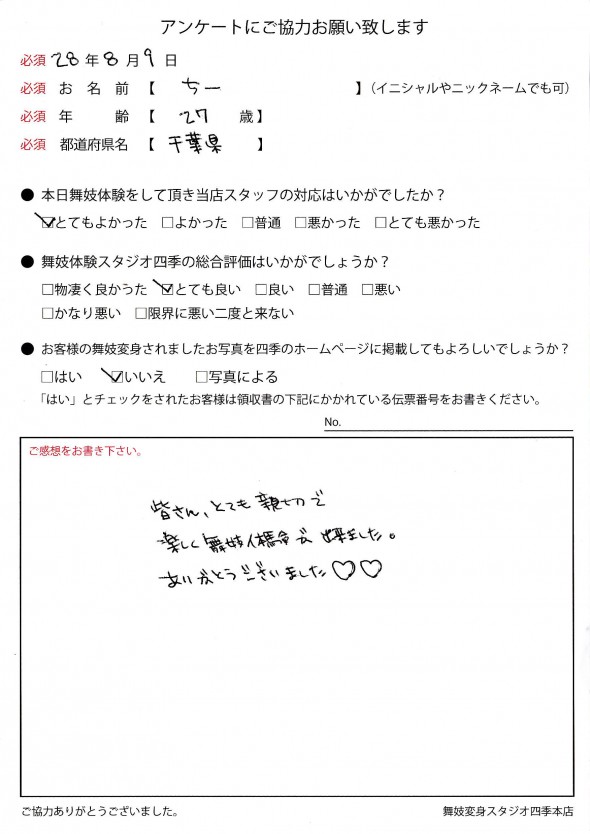 アンケートにご協力お願い致します
必須 28年8月9日
必須 お名前【 ちー 】（イニシャルやニックネームでも可）
必須 年齢【 27 歳】
必須 都道府県名【 千葉県 】
● 本日舞妓体験をして頂き当店スタッフの対応はいかがでしたか？
☑とてもよかった □よかった □普通 □悪かった □とても悪かった
● 舞妓体験スタジオ四季の総合評価はいかがでしょうか？
□物凄く良かつた ☑とても良い □良い □普通 □悪い
□かなり悪い □限界に悪い二度と来ない
● お客様の舞妓変身されましたお写真を四季のホームページに掲載してもよろしいでしょうか？
□はい ☑いいえ □写真による
「はい」とチェックをされたお客様は領収書の下記にかかれている伝票番号をお書きください。
No.
ご感想をお書き下さい。
皆さん、とても親切で
楽しく舞妓体験が出来ました。
ありがとうございました♡♡
ご協力ありがとうございました。
舞妓変身スタジオ四季本店